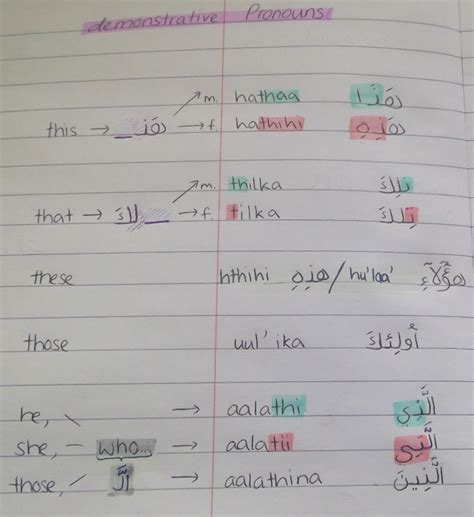 demonstrative Pronouns
m. hathaa هَذَا
this → __هَذ → f. hathihi هَذِهِ
m. thilka ذلِكَ
that → لكَ__ → f. tilka تِلكَ
these hthihi هذِهِ / hu'laa' هَؤُلَاءِ
those uul'ika أُولئِكَ
he, \ → aalathi الَّذِي
she, – who... → aalatii الَّتِي
those, / الَّ → aalathina الَّذِينَ